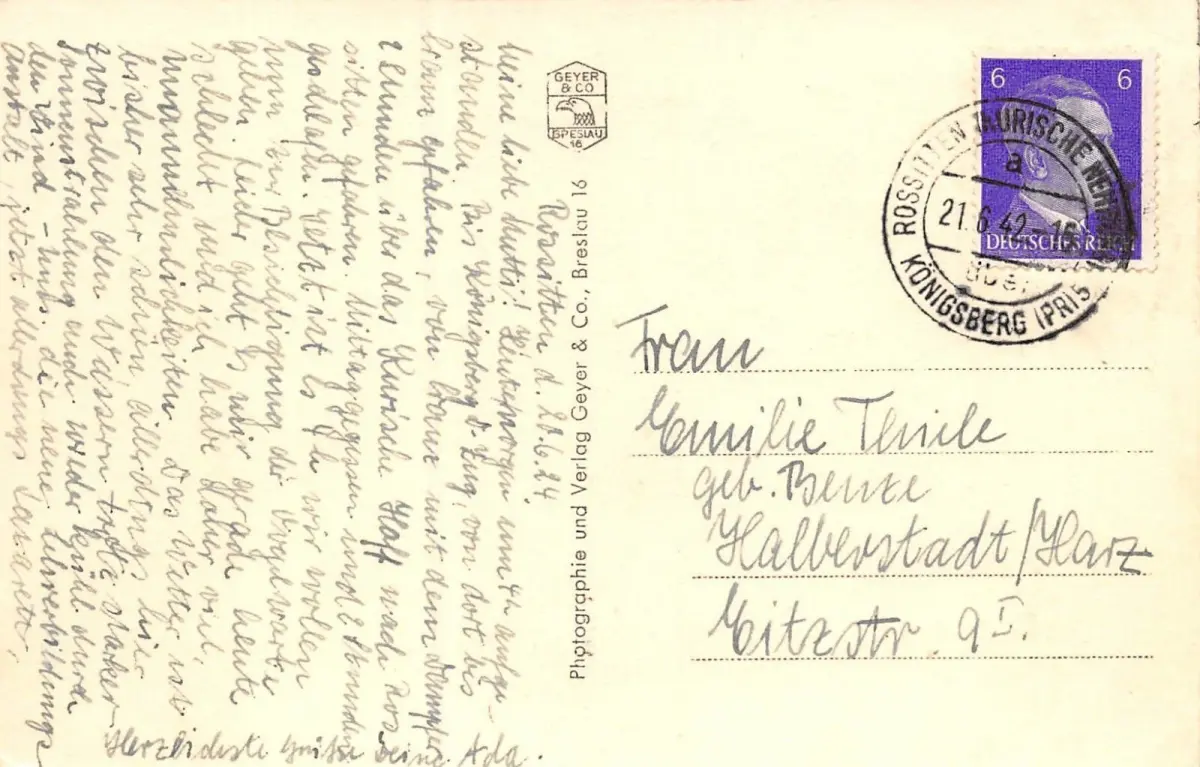 Rossitten d. 20.6.24.
Meine liebe Mutti! Heutemorgen um 4h aufge-
standen. Bis Königsberg D-Zug, von dort bis
Cranz gefahren, von Cranz mit dem Dampfer
2 Stunden über das Kurische Haff nach Ros
sitten gefahren. Mittaggegessen und 2 Stunden
geschlafen. Jetzt ist es 5h wir wollen
nun zur Besichtigung der Vogelwarte
gehen. Leider geht es mir grade heute
schlecht und ich habe daher viel
Unannehmlichkeiten. Das Wetter ist
bisher sehr schön allerdings hier
zwischen den Wassern trotz starker
Sonnenstrahlung auch wieder kühl durch
den Wind - uns. die neue Lehrerbildungs
anstalt, jetzt allerdings Lazarett.
Herzlichste Grüsse Deine Ada.
GEYER
& CO
BRESLAU
16
Photographie und Verlag Geyer & Co., Breslau 16
6 6
DEUTSCHES REICH
ROSSITTEN KURISCHE NEHRUNG
a
21.6.42-16
über
KÖNIGSBERG (PR) 5
Frau
Emilie Thiele
geb. Benze
Halberstadt/Harz
Gitzstr. 9 I.